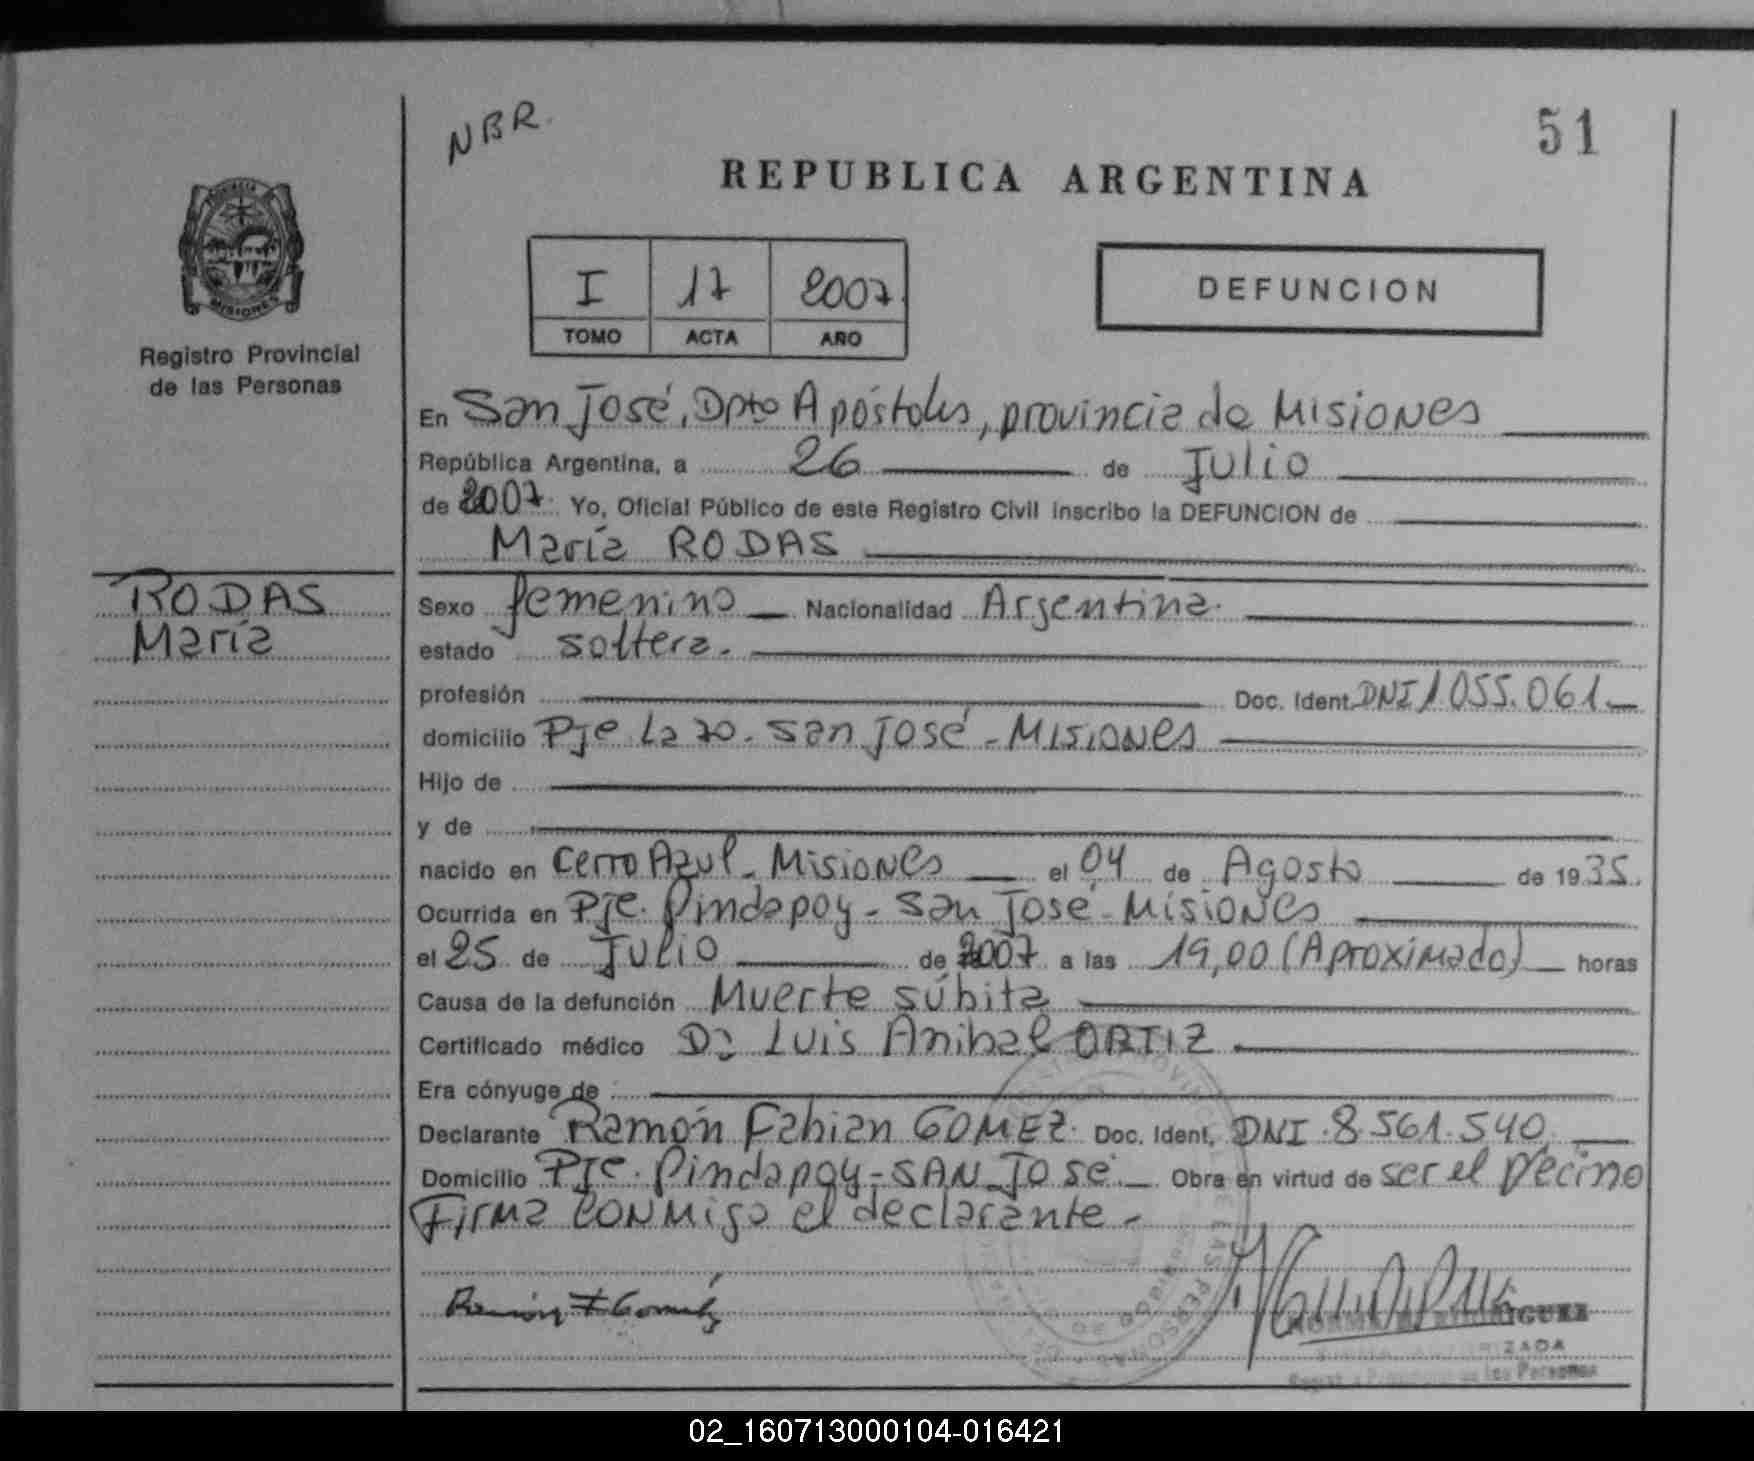 NBR.
51
REPUBLICA ARGENTINA
I 17 2007
TOMO ACTA AÑO
DEFUNCION
MISIONES
Registro Provincial
de las Personas
RODAS
María
En San José, Dpto Apóstoles, provincia de Misiones
República Argentina, a 26 de Julio
de 2007. Yo, Oficial Público de este Registro Civil inscribo la DEFUNCION de
María RODAS
Sexo femenino Nacionalidad Argentina.
estado soltera.
profesión Doc. Ident. DNI 1.055.061
domicilio Pje Lazo. San José - Misiones
Hijo de
y de
nacido en Cerro Azul - Misiones el 04 de Agosto de 1935.
Ocurrida en Pje. Pindapoy - San José - Misiones
el 25 de Julio de 2007 a las 19,00 (Aproximado) horas
Causa de la defunción Muerte súbita
Certificado médico Dr Luis Anibal ORTIZ
Era cónyuge de
Declarante Ramón Fabian GOMEZ. Doc. Ident. DNI 8.561.540
Domicilio Pje. Pindapoy - SAN José. Obra en virtud de ser el Vecino
Firma conmigo el declarante -
Ramón F Gomez
las Personas
02_160713000104-016421